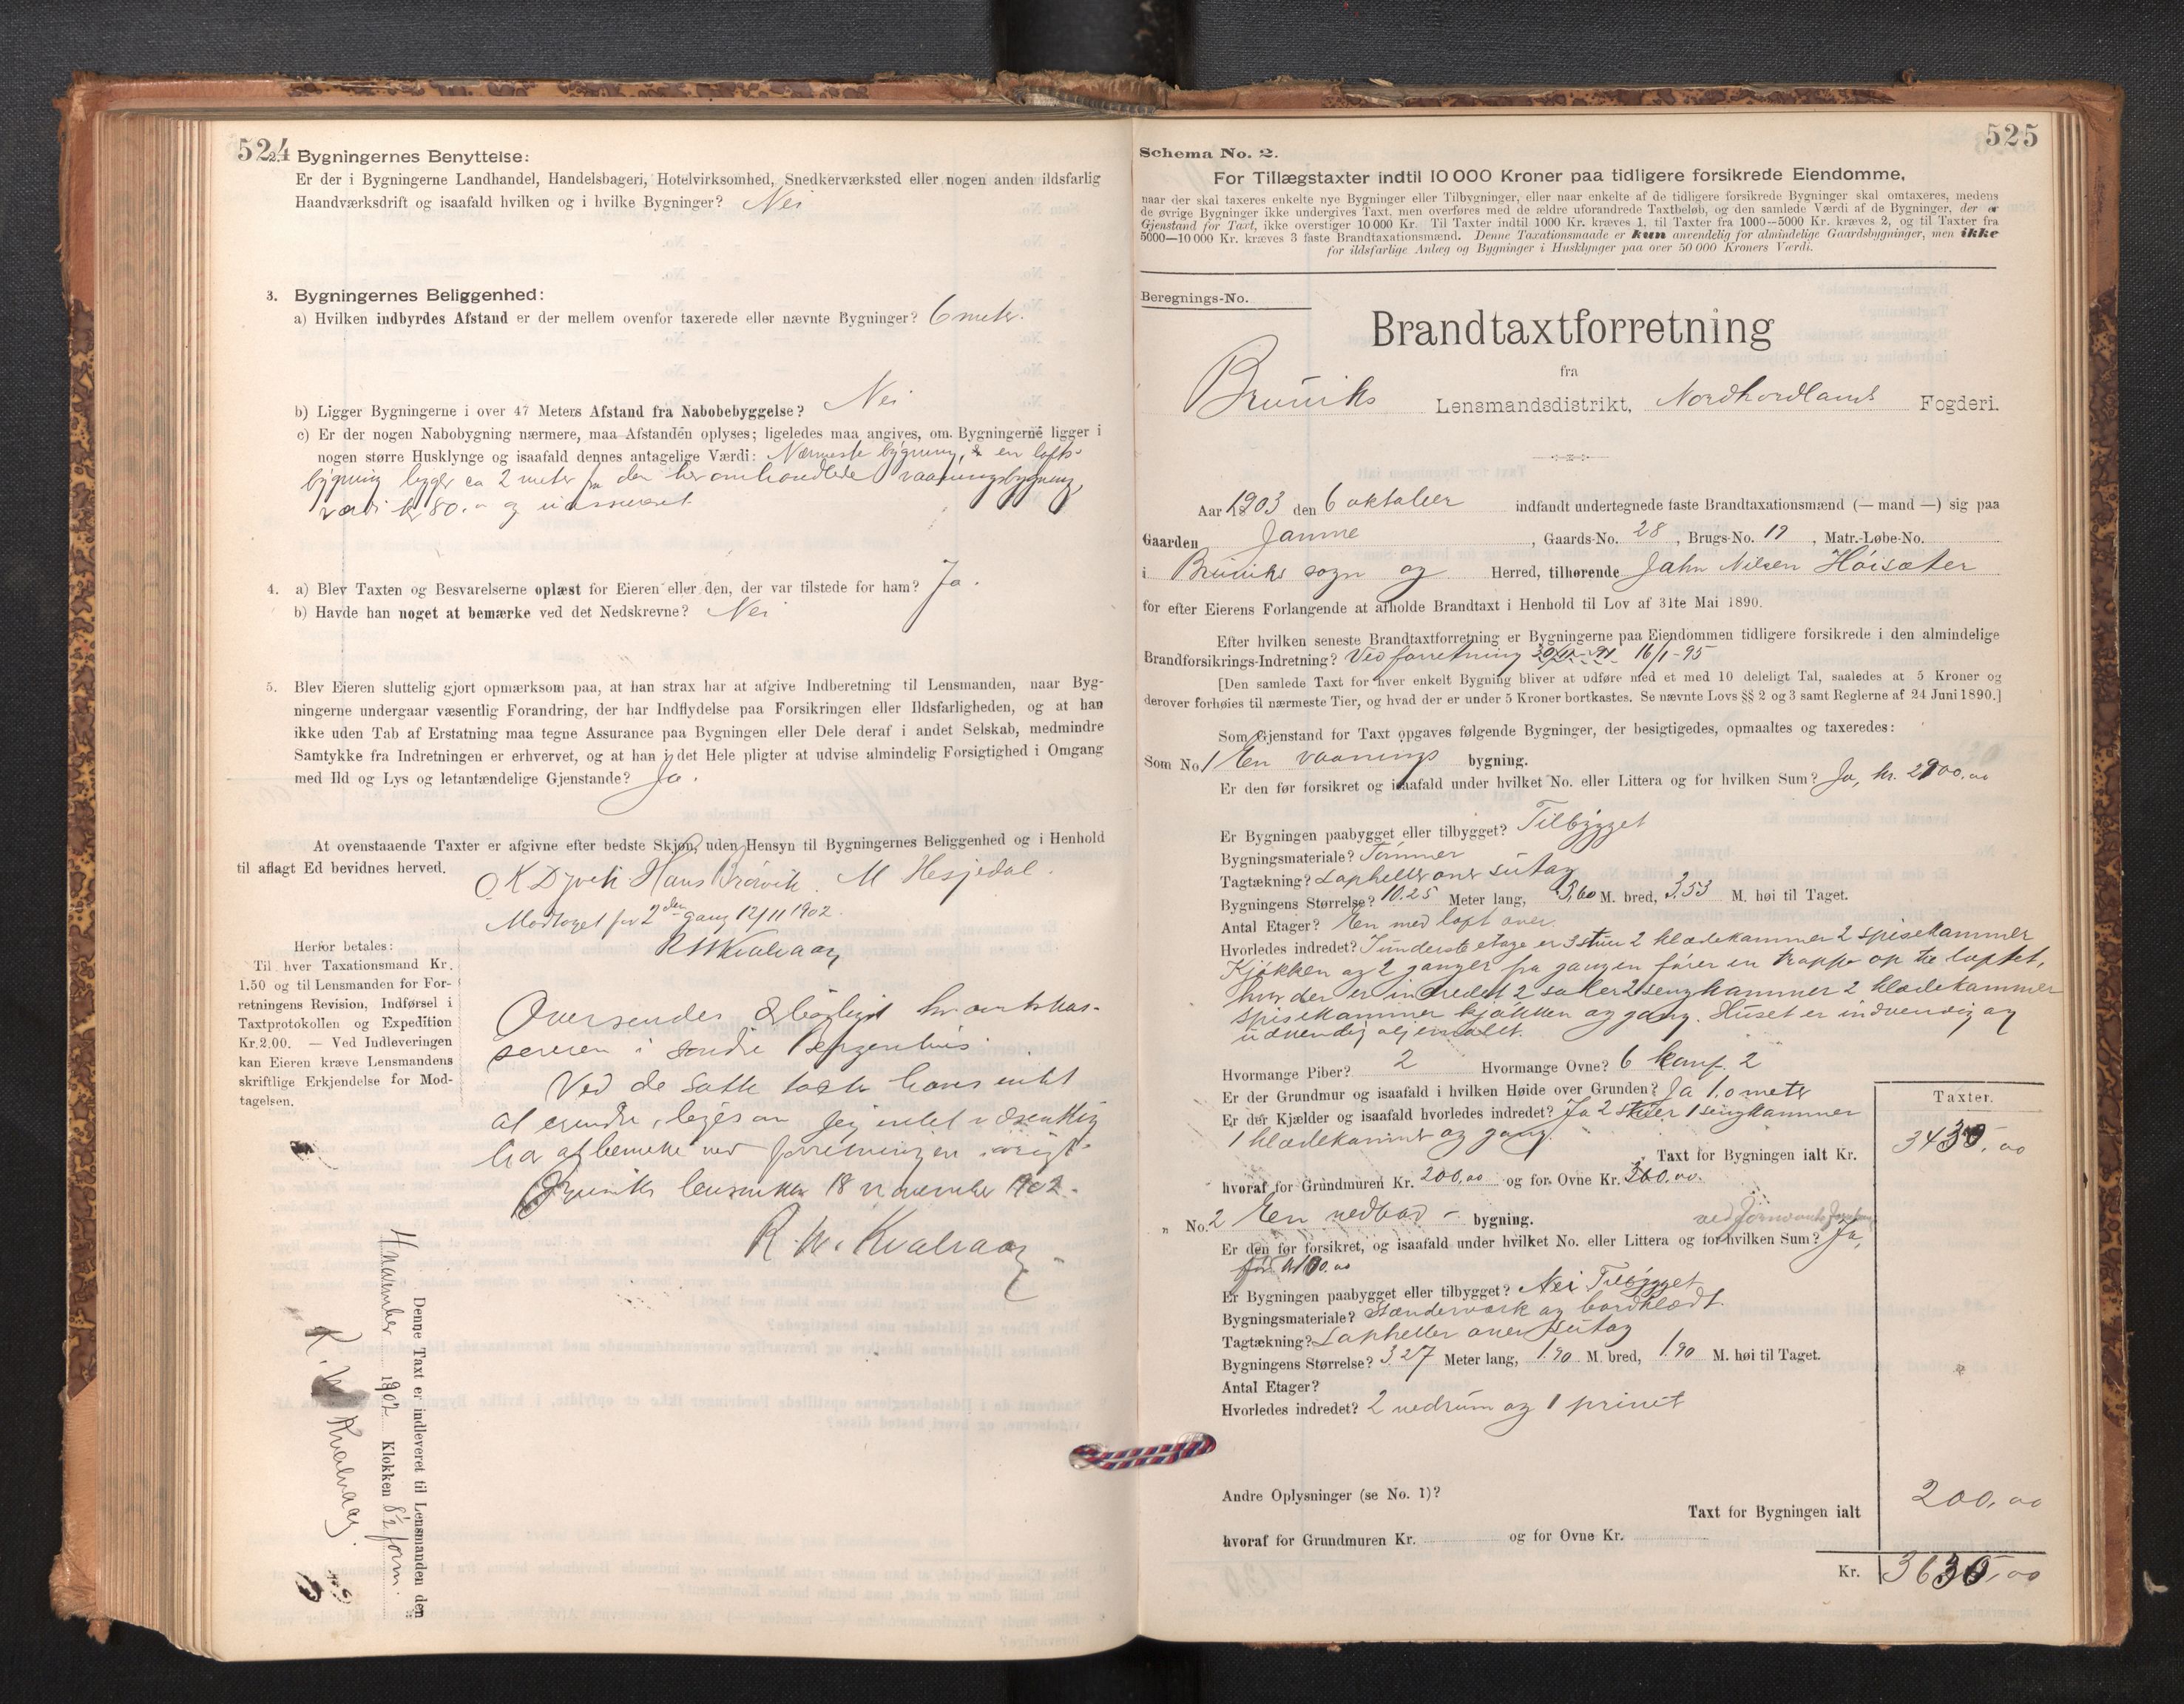 524
2. Bygningernes Benyttelse:
Er der i Bygningerne Landhandel, Handelsbageri, Hotelvirksomhed, Snedkerværksted eller nogen anden ildsfarlig
Haandværksdrift og isaafald hvilken og i hvilke Bygninger? Nei
3. Bygningernes Beliggenhed:
a) Hvilken indbyrdes Afstand er der mellem ovenfor taxerede eller nævnte Bygninger? 6 meter.
b) Ligger Bygningerne i over 47 Meters Afstand fra Nabobebyggelse? Nei
c) Er der nogen Nabobygning nærmere, maa Afstanden oplyses; ligeledes maa angives, om Bygningerne ligger i
nogen større Husklynge og isaafald dennes antagelige Værdi: Nærmeste bygning, en lofts-
bygning ligger ca 2 meter fra den her omhandlede vaaningsbygning,
værdi kr 80.- og uassureret
4. a) Blev Taxten og Besvarelserne oplæst for Eieren eller den, der var tilstede for ham? Ja.
b) Havde han noget at bemærke ved det Nedskrevne? Nei
5. Blev Eieren sluttelig gjort opmærksom paa, at han strax har at afgive Indberetning til Lensmanden, naar Byg-
ningerne undergaar væsentlig Forandring, der har Indflydelse paa Forsikringen eller Ildsfarligheden, og at han
ikke uden Tab af Erstatning maa tegne Assurance paa Bygningen eller Dele deraf i andet Selskab, medmindre
Samtykke fra Indretningen er erhvervet, og at han i det Hele pligter at udvise almindelig Forsigtighed i Omgang
med Ild og Lys og letantændelige Gjenstande? Ja.
At ovenstaaende Taxter er afgivne efter bedste Skjøn, uden Hensyn til Bygningernes Beliggenhed og i Henhold
til aflagt Ed bevidnes herved.
O K Dyvik Hans M Hesjedal.
Modtaget for 2den gang 12/11 1902.
R M Kvalvaag
Herfor betales:
Til hver Taxationsmand Kr.
1.50 og til Lensmanden for For-
retningens Revision, Indførsel i
Taxtprotokollen og Expedition
Kr. 2.00. — Ved Indleveringen
kan Eieren kræve Lensmandens
skriftlige Erkjendelse for Mod-
tagelsen.
Oversendes
i søndre Bergenhus
Ved de satte taxter haves intet
at erindre, ligesom jeg intet væsentlig
har at bemerke ved forretningen.
Bruviks lensmken 18 november 1902.
R. M. Kvalvaag
Denne Taxt er indleveret til Lensmanden den
4 november 1902 Klokken 8½ form.
R. M. Kvalvaag.
525
Schema No. 2.
For Tillægstaxter indtil 10 000 Kroner paa tidligere forsikrede Eiendomme,
naar der skal taxeres enkelte nye Bygninger eller Tilbygninger, eller naar enkelte af de tidligere forsikrede Bygninger skal omtaxeres, medens
de øvrige Bygninger ikke undergives Taxt, men overføres med de ældre uforandrede Taxtbeløb, og den samlede Værdi af de Bygninger, der er
Gjenstand for Taxt, ikke overstiger 10 000 Kr. Til Taxter indtil 1000 Kr. kræves 1, til Taxter fra 1000—5000 Kr. kræves 2, og til Taxter fra
5000—10 000 Kr. kræves 3 faste Brandtaxationsmænd. Denne Taxationsmaade er kun anvendelig for almindelige Gaardsbygninger, men ikke
for ildsfarlige Anlæg og Bygninger i Husklynger paa over 50 000 Kroners Værdi.
Beregnings-No.
Brandtaxtforretning
fra
Bruviks Lensmandsdistrikt, Nordhordlands Fogderi.
Aar 1903 den 6 oktober indfandt undertegnede faste Brandtaxationsmænd (— mand —) sig paa
Gaarden Janne, Gaards-No. 28, Brugs-No. 17, Matr.-Løbe-No.
i Bruviks sogn og Herred, tilhørende Jahn Nilsen Höisæter
for efter Eierens Forlangende at afholde Brandtaxt i Henhold til Lov af 31te Mai 1890.
Efter hvilken seneste Brandtaxtforretning er Bygningerne paa Eiendommen tidligere forsikrede i den almindelige
Brandforsikrings-Indretning? Ved forretning 16/1-95
[Den samlede Taxt for hver enkelt Bygning bliver at udføre med et med 10 deleligt Tal, saaledes at 5 Kroner og
derover forhøies til nærmeste Tier, og hvad der er under 5 Kroner bortkastes. Se nævnte Lovs §§ 2 og 3 samt Reglerne af 24 Juni 1890.]
Som Gjenstand for Taxt opgaves følgende Bygninger, der besigtigedes, opmaaltes og taxeredes:
Som No. 1 En vaanings bygning.
Er den før forsikret og isaafald under hvilket No. eller Littera og for hvilken Sum? Ja, kr. 2900.00
Er Bygningen paabygget eller tilbygget? Tilbygget
Bygningsmateriale? Tømmer
Tagtækning? Lapheller over sutag
Bygningens Størrelse? 10.25 Meter lang, 5,60 M. bred, 3,53 M. høi til Taget.
Antal Etager? En med loft over.
Hvorledes indredet? I underste etage er 3 stuer 2 klædekammer 2 spisekammer
Kjökken og 2 ganger fra gangen förer en trappe op til loftet,
hvor der er indredet 2 saler 2 sengkammer 2 klædekammer
spisekammer kjøkken og gang. Huset er indvendig og
udvendig oljemalet.
Hvormange Piber? 2 Hvormange Ovne? 6 komf. 2
Er der Grundmur og isaafald i hvilken Høide over Grunden? Ja 1.0 meter
Er der Kjælder og isaafald hvorledes indredet? Ja 2 stuer 1 sengkammer
1 klædekammer og gang.
Taxter.
Taxt for Bygningen ialt Kr. 3430,00
hvoraf for Grundmuren Kr. 200,00 og for Ovne Kr. 360,00.
„ No. 2 En vedbod - bygning.
Er den før forsikret, og isaafald under hvilket No. eller Littera og for hvilken Sum? Ja,
Er Bygningen paabygget eller tilbygget? Nei Tilbygget
Bygningsmateriale? Stænderværk og bordklædt.
Tagtækning? Lapheller over sutag
Bygningens Størrelse? 3.27 Meter lang, 1.90 M. bred, 1.90 M. høi til Taget.
Antal Etager?
Hvorledes indredet? 2 vedrum og 1 privet
Andre Oplysninger (se No. 1)?
Taxt for Bygningen ialt 200,00
hvoraf for Grundmuren Kr. og for Ovne Kr.
Kr. 3630,00